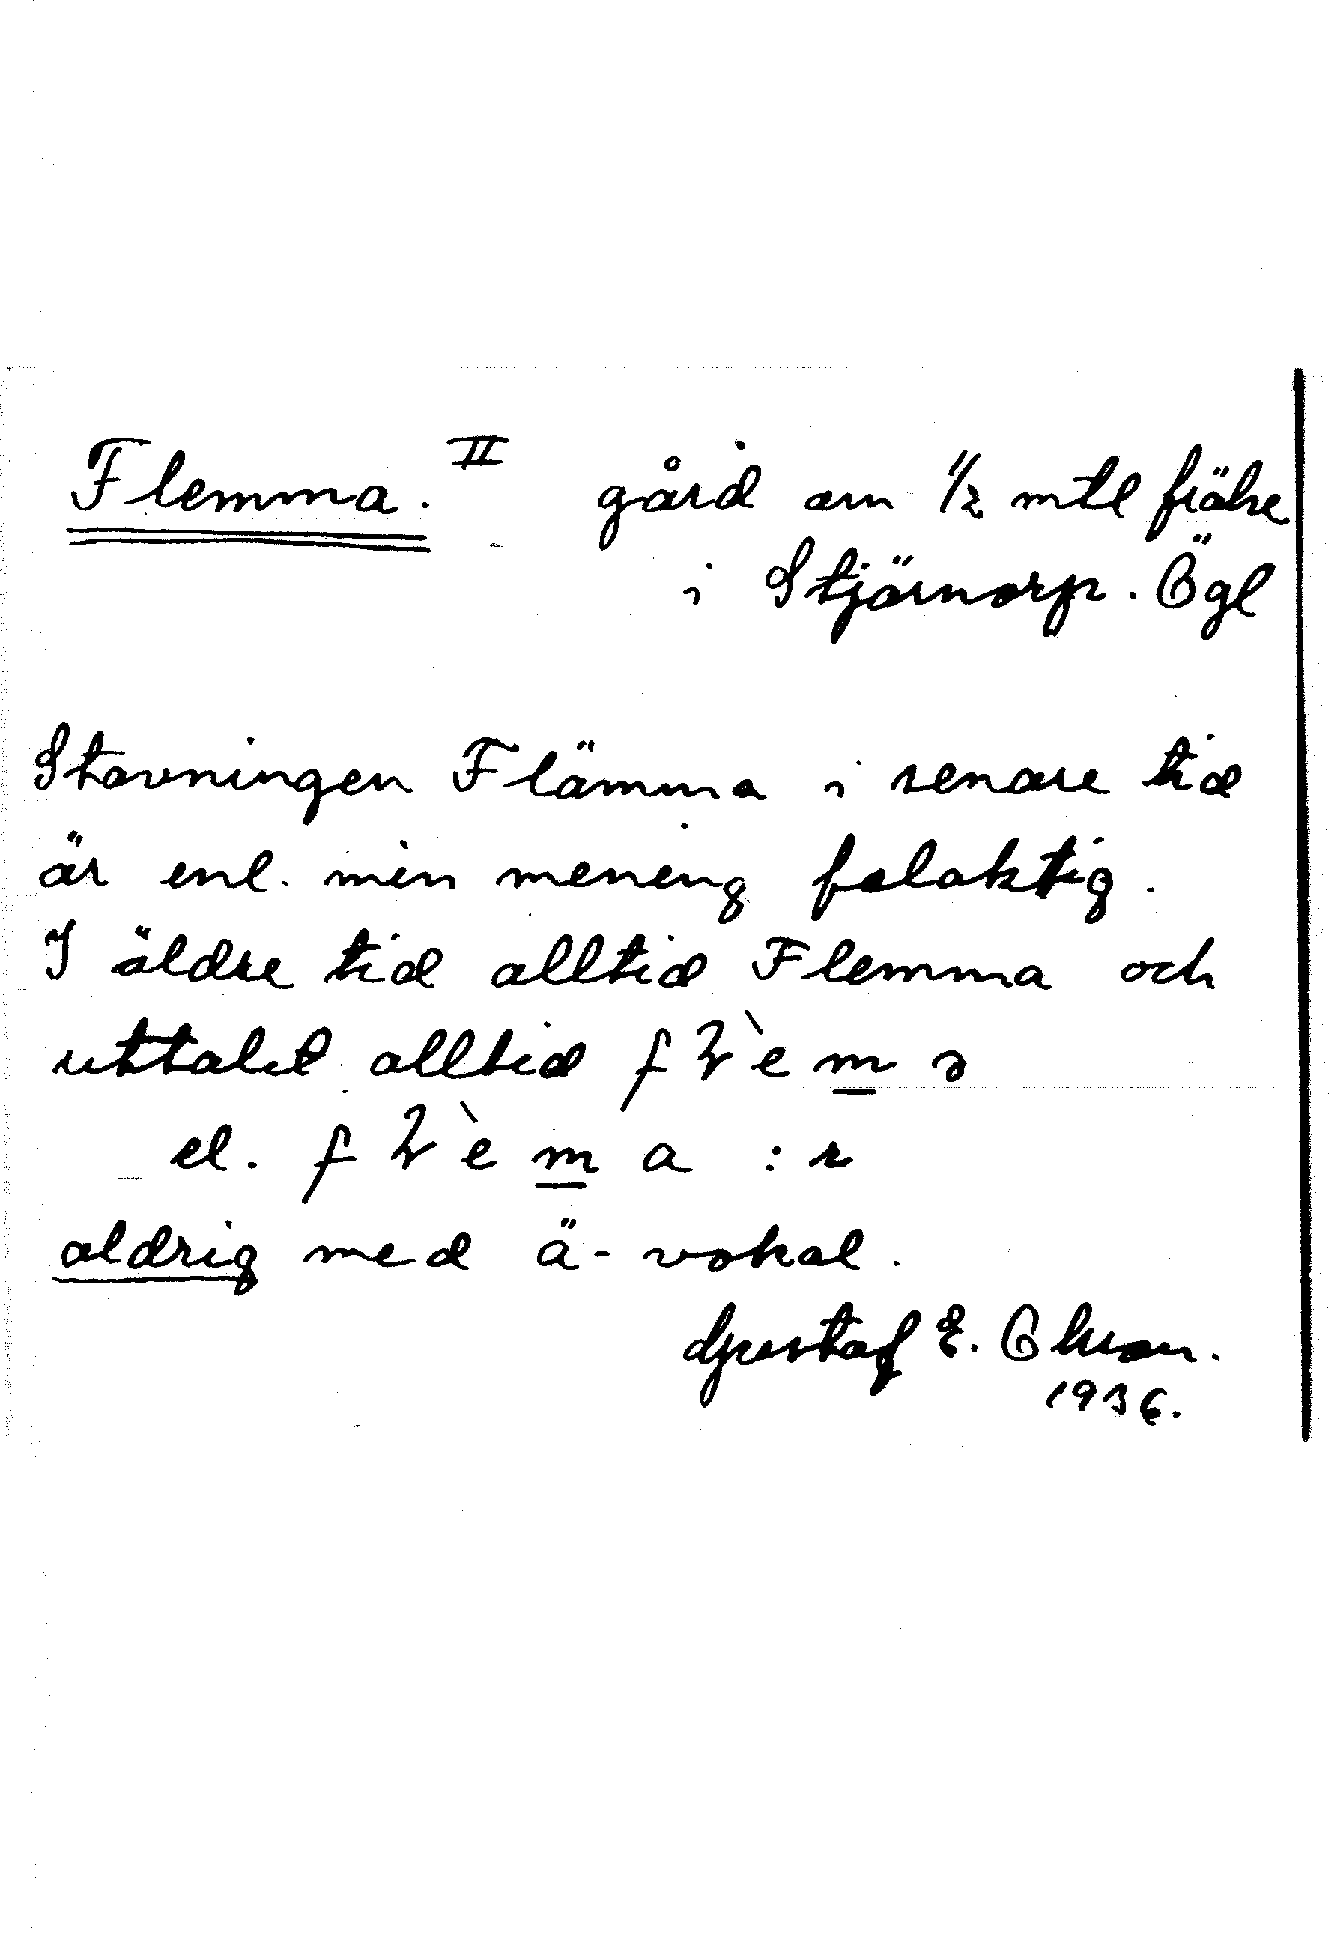 Flemma. II gård om 1/2 mtl frälse
i Stjärnorp. Ögl
Stavningen Flämma i senare tid
är enl. min mening felaktig.
I äldre tid alltid Flemma och
uttalet alltid fɽ̀emə
el. fɽ̀ema :r
aldrig med ä-vokal.
Gustaf E. Olsson.
1936.